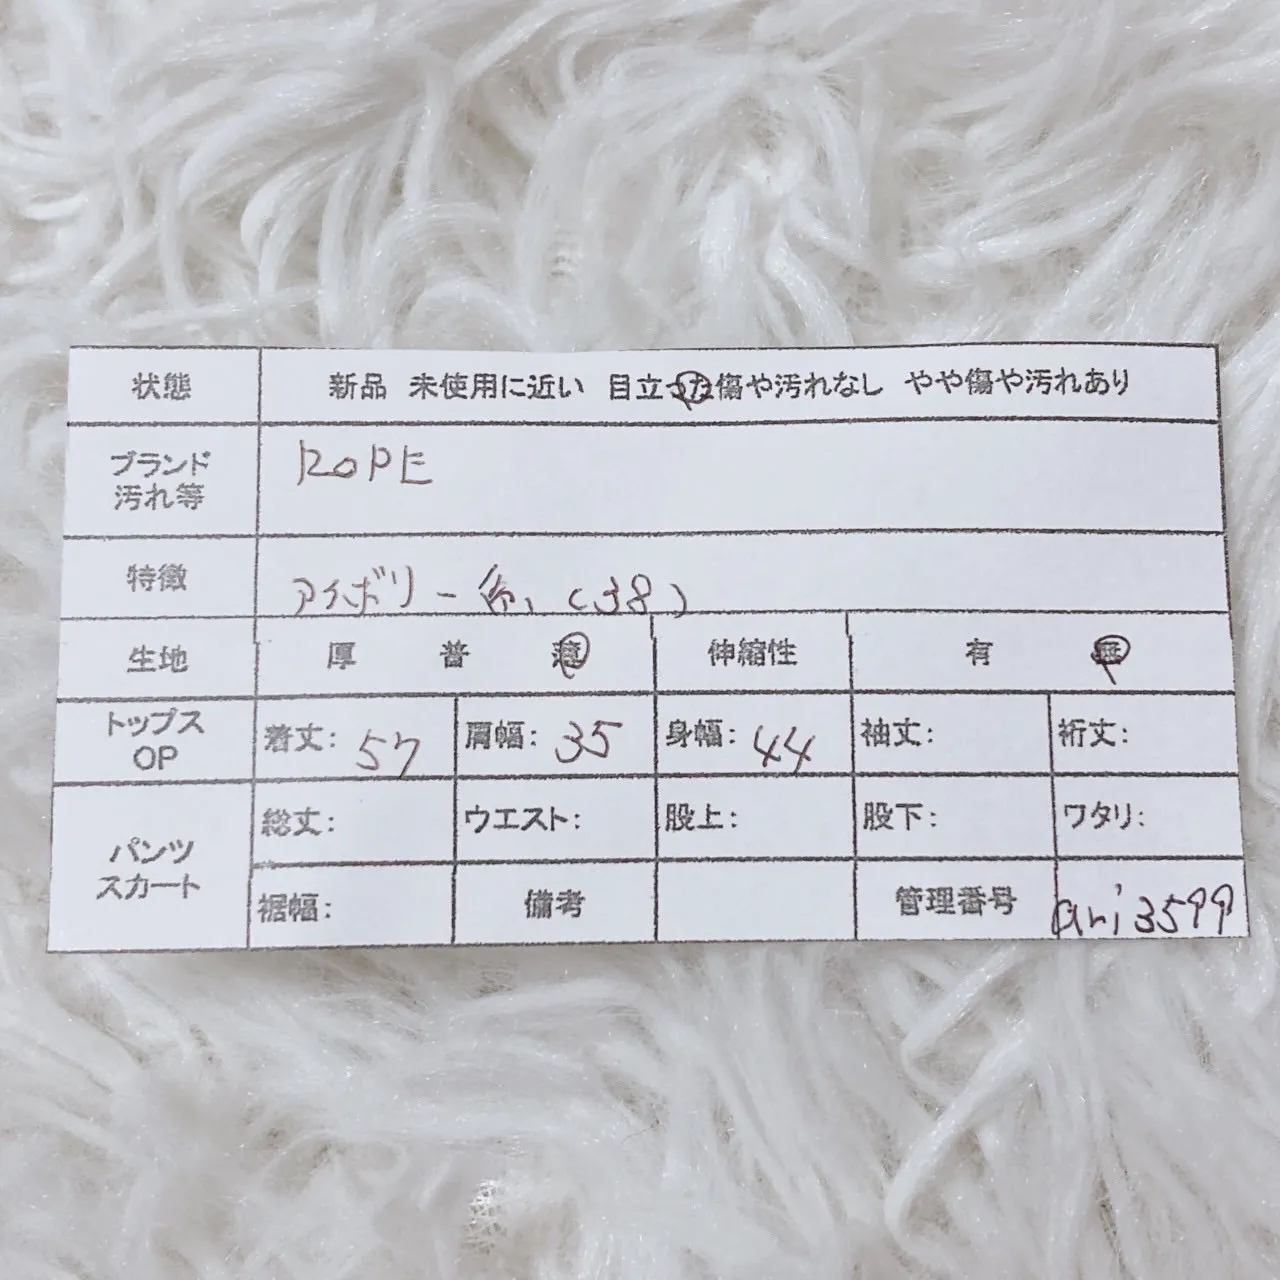 状態 新品 未使用に近い 目立った傷や汚れなし やや傷や汚れあり
ブランド
汚れ等 ROPE
特徴 アイボリー系、(38)
生地 厚 普 薄 伸縮性 有 無
トップス
OP 着丈: 57 肩幅: 35 身幅: 44 袖丈: 裄丈:
パンツ
スカート 総丈: ウエスト: 股上: 股下: ワタリ:
裾幅: 備考 管理番号 ari3599